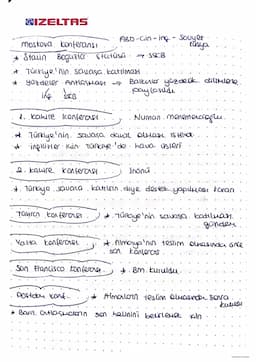 İZELTAŞ
Moskova Konferansı ABD-Çin-İng-Sovyet
Rusya
* Stalin Boğazlar Statüsü → SSCB
* Türkiye'nin savaşa katılması
* Yüzdeler Antlaşması → Balkanlar yüzdelik dilimlere
İng SSCB paylaşıldı
1. Kahire Konferansı Numan Menemencioğlu
* Türkiye'nin savaşa dahil olması istendi
* İngilizler için Türkiye'de hava üsleri
2. Kahire Konferansı İnönü
* Türkiye savaşa katılsın diye destek yapılması kararı
Tahran Konferansı * Türkiye'nin savaşa katılması
gündem
Yalta Konferansı * Almanya'nın teslim olmasından önce
son konferans
San Francisco Konferansı * BM kuruldu
Postdam Konf. * Almanların teslim olmasından sonra
* Barış antlaşmasının son halini belirlemek için